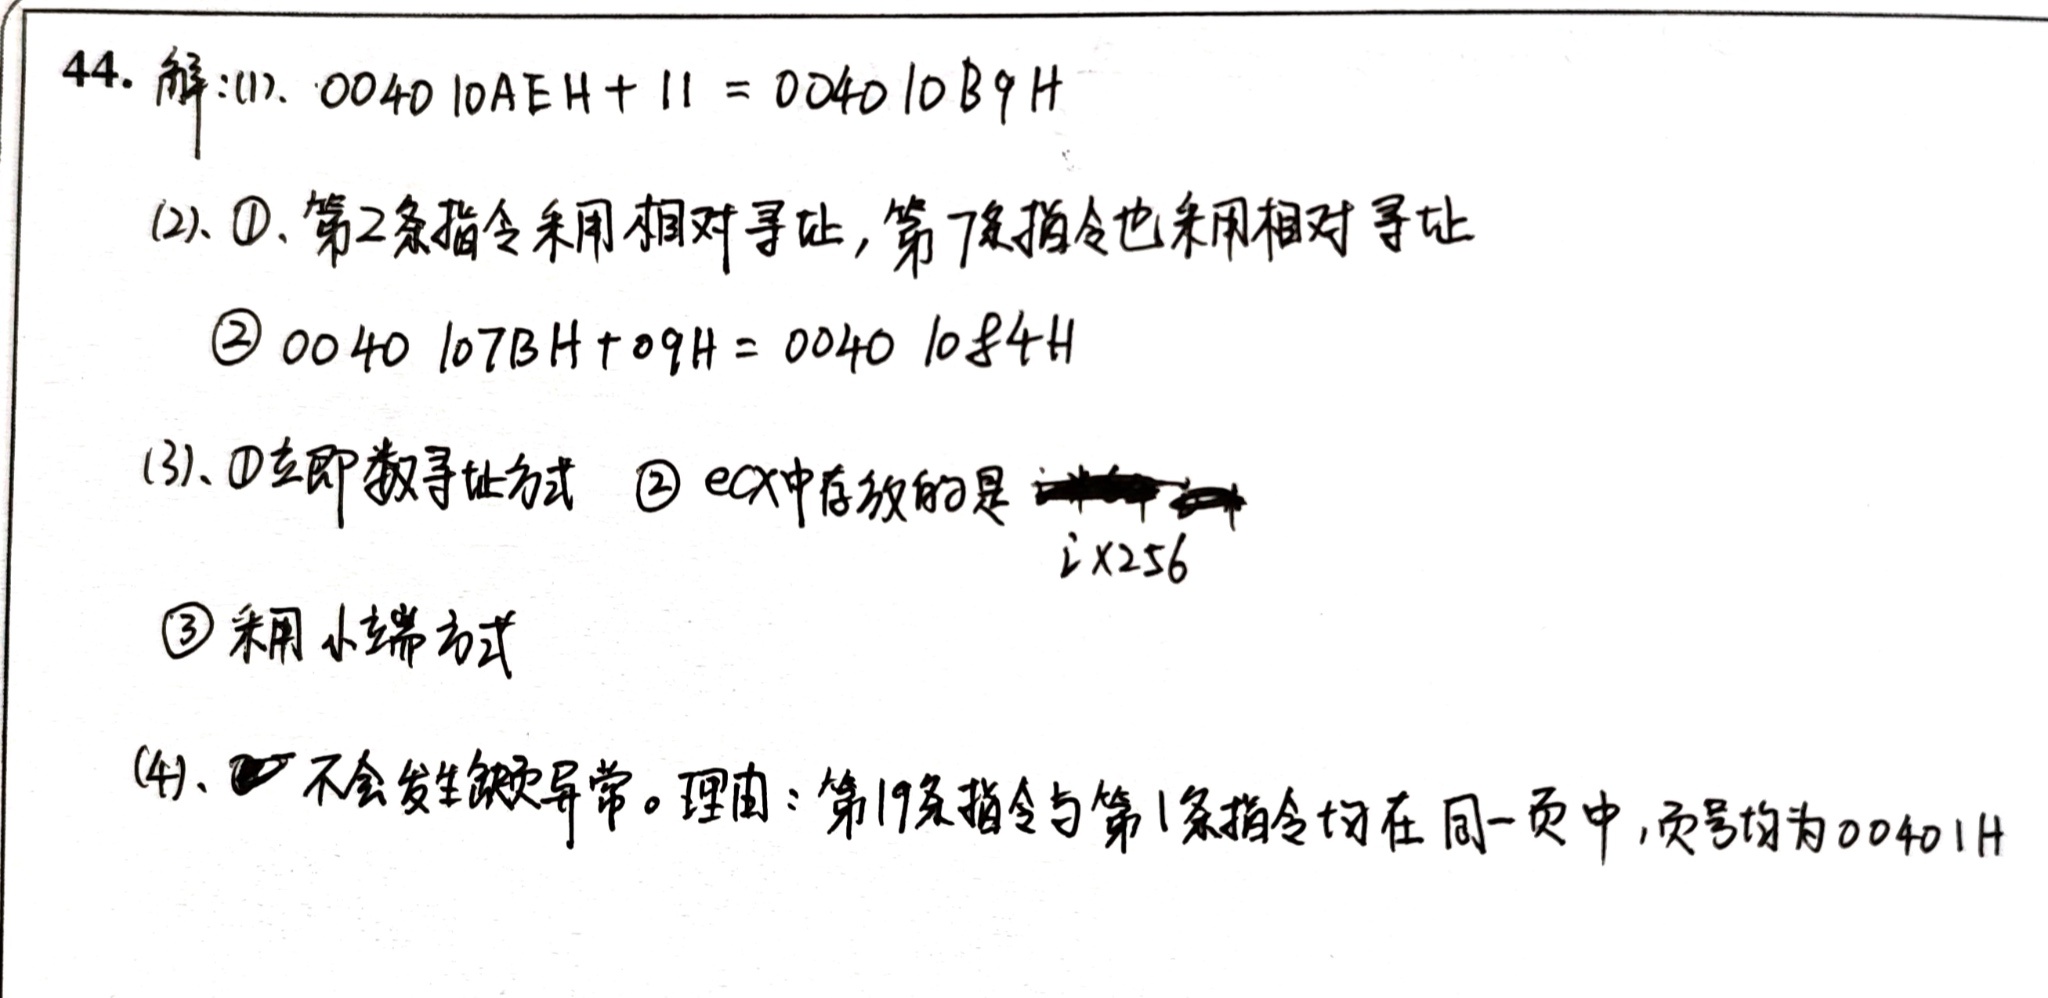 44. 解:(1). 004010AEH + 11 = 004010B9H
(2)、①、第2条指令采用相对寻址,第7条指令也采用相对寻址
② 0040 107BH + 09H = 0040 1084H
(3)、①立即数寻址方式 ② ecx中存放的是
i×256
③ 采用小端方式
(4)、不会发生缺页异常。理由:第19条指令与第1条指令均在同一页中,页号均为00401H